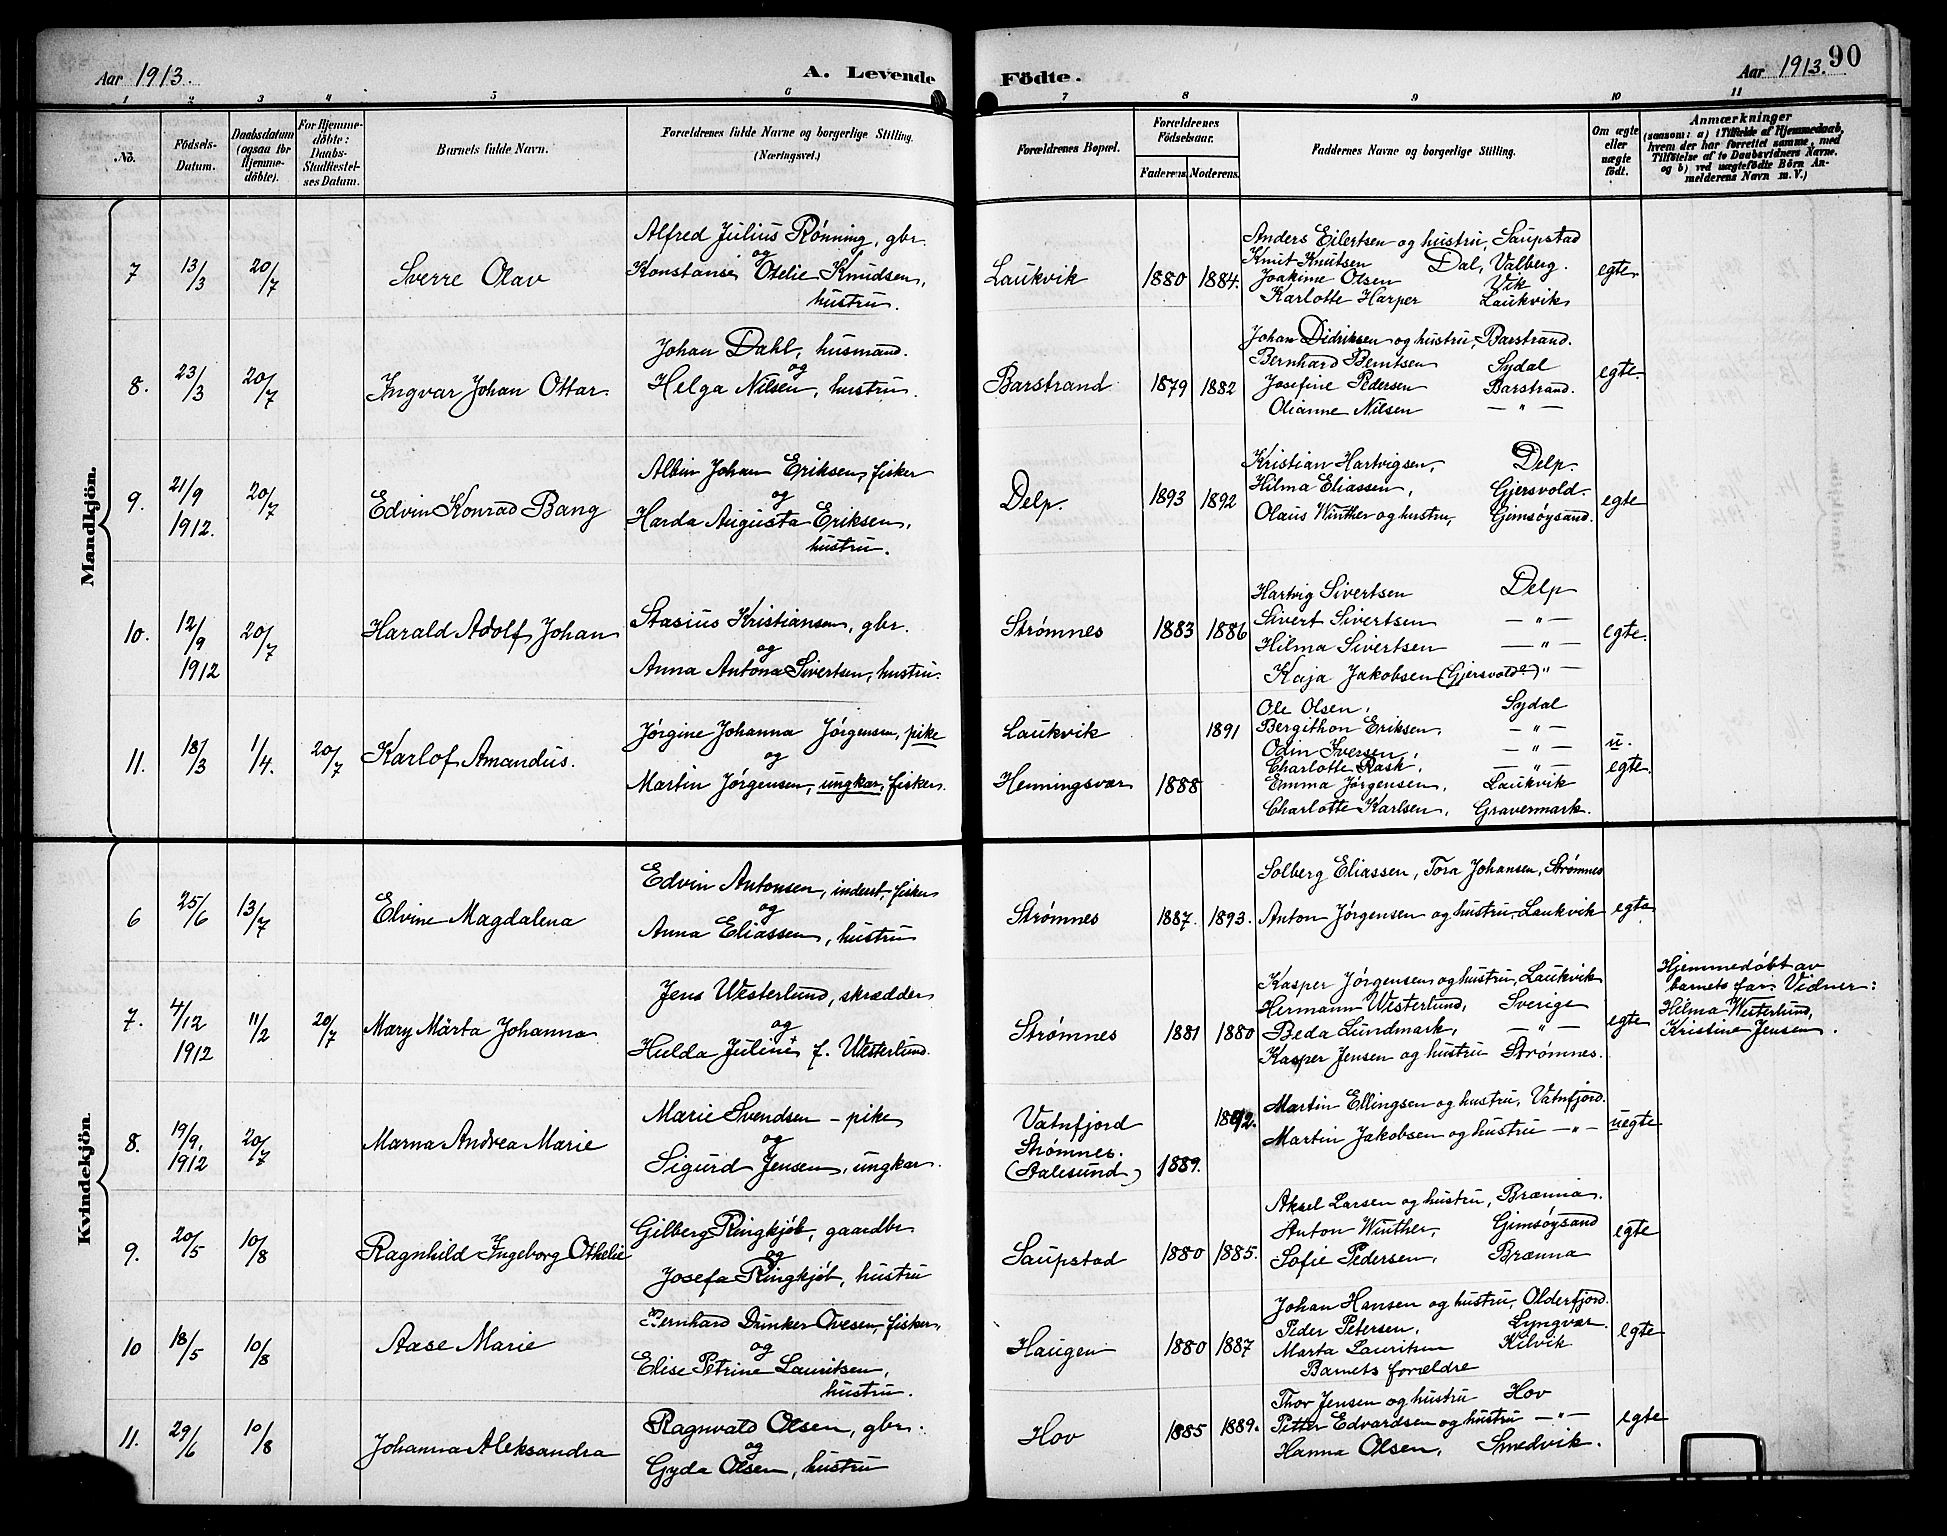 Aar 1913. A. Levende Födte. Aar 1913. 90
1 2 3 4 5 6 7 8 9 10 11
No. Födsels-Datum. Daabsdatum (ogsaa for Hjemme-döbte). For Hjemme-döbte: Daabs-Stadfæstel-ses Datum. Barnets fulde Navn. Forældrenes fulde Navne og borgerlige Stilling. (Næringsvei.) Forældrenes Bopæl. Forældrenes Födselsaar. Faderens. Moderens. Faddernes Navne og borgerlige Stilling. Om ægte eller uægte födt. Anmærkninger (saasom: a) i Tilfælde af Hjemmedaab, hvem der har forrettet samme, med Tilföielse af to Daabsvidners Navne, og b) ved uægtefödte Börn An-melderens Navn m. V.)
Mandkjön.
7 13/3 20/7 Sverre Olav
Alfred Julius Rønning, gbr.
og
Konstanse Otelie Knudsen,
hustru.
Laukvik 1880 1884.
Anders Eilertsen og hustru, Saupstad
Knut Knutsen Dal, Valberg.
Joakime Olsen Vik
Karlotte Harper Laukvik
egte
8. 23/3 20/7 Ingvar Johan Ottar.
Johan Dahl, husmand.
og
Helga Nilsen, hustru.
Barstrand 1879 1882
Johan Didriksen og hustru, Barstrand.
Bernhard Berntsen Sydal
Josefine Pedersen Barstrand.
Olianne Nilsen — " —
egte.
9. 21/9 1912. 20/7 Edvin Konrad Bang
Albin Johan Eriksen, fisker
og
Harda Augusta Eriksen,
hustru.
Delp. 1893 1892
Kristian Hartvigsen, Delp.
Hilma Eliassen, Gjersvold.
Olaus Winther og hustru, Gimsøysand.
egte
10. 12/9 1912 20/7 Harald Adolf Johan
Stasius Kristiansen, gbr.
og
Anna Antona Sivertsen, hustru.
Strømnes 1883 1886
Hartvig Sivertsen Delp
Sivert Sivertsen — " —
Hilma Sivertsen — " —
Kaja Jakobsen (Gjersvold?) " —
egte.
11. 18/3 1/4. 20/7 Karlof Amandus.
Jørgine Johanna Jørgensen, pike
og
Martin Jørgensen, ungkar, fisker.
Laukvik 1891
Henningsvær 1888
Ole Olsen, Sydal
Bergithon Eriksen, — " —
Odin Iversen, — " —
Charlotte Rask, — " —
Emma Jørgensen, Laukvik
Charlotte Karlsen, Gravermark.
u.
egte.
Kvindekjön.
6 25/6 13/7 Elvine Magdalena
Edvin Antonsen, inderst, fisker
og
Anna Eliassen, hustru
Strømnes 1887. 1893.
Solberg Eliassen, Tora Johansen, Strømnes
Anton Jørgensen og hustru, Laukvik
egte
7. 4/12 1912 11/2 20/7 Mary Märta Johanna
Jens Westerlund, skrædder
og
Hulda Juline f. Westerlund.
Strømnes 1881 1880
Kasper Jørgensen og hustru, Laukvik
Hermann Westerlund, Sverige
Beda Lundmark, — " —
Kasper Jensen og hustru Strømnes.
egte
Hjemmedøbt av
barnets far. Vidner:
Hilma Westerlund,
Kristine Jensen.
8. 19/9. 1912 20/7 Marna Andrea Marie
Marie Svendsen – pike
og
Sigurd Jensen, ungkar.
Vatnfjord
Strømnes.
(Aalesund) 1889.
Martin Ellingsen og hustru, Vatnfjord.
Martin Jakobsen og hustru — " —
uegte
9. 20/5 10/8 Ragnhild Ingeborg Othelie
Gilberg Ringkjøb, gaardbr
og
Josefa Ringkjøb, hustru
Saupstad 1880 1885.
Aksel Larsen og hustru, Brænna.
Anton Winther, Gimsøysand
Sofie Pedersen, Brænna
egte
10 18/5 10/8 Aase Marie
Bernhard Dunker Ovesen, fisker,
og
Elise Petrine Lauritsen,
hustru.
Haugen 1880 1887
Johan Hansen og hustru, Olderfjord.
Peder Petersen, Lyngvær.
Marta Lauritsen Kilvik
Barnets forældre
egte
11. 29/6 10/8 Johanna Aleksandra
Ragnvald Olsen, gbr.
og
Gyda Olsen, hustru
Hov 1885 1889.
Thor Jensen og hustru Hov
Petter Edvardsen og hustru — " —
Hanna Olsen, Smedvik.
egte